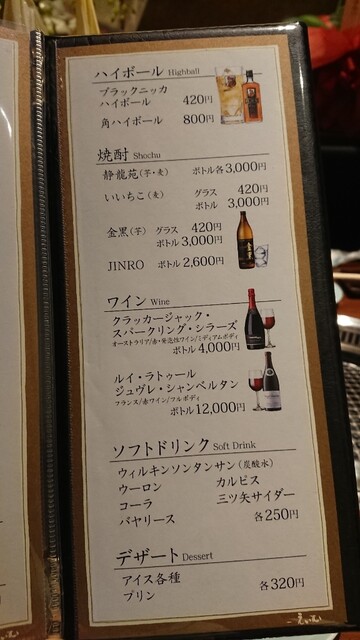 ハイボール Highball
ブラックニッカ
ハイボール 420円
角ハイボール 800円
焼酎 Shochu
静龍苑(芋・麦) ボトル各3,000円
いいちこ(麦) グラス 420円
ボトル 3,000円
金黒(芋) グラス 420円
ボトル3,000円
JINRO ボトル2,600円
ワイン Wine
クラッカージャック・
スパークリング・シラーズ
オーストラリア/赤・発泡性ワイン/ミディアムボディ
ボトル4,000円
ルイ・ラトゥール
ジュヴレ・シャンベルタン
フランス/赤ワイン/フルボディ
ボトル12,000円
ソフトドリンク Soft Drink
ウィルキンソンタンサン(炭酸水)
ウーロン カルピス
コーラ 三ツ矢サイダー
バヤリース 各250円
デザート Dessert
アイス各種
プリン 各320円